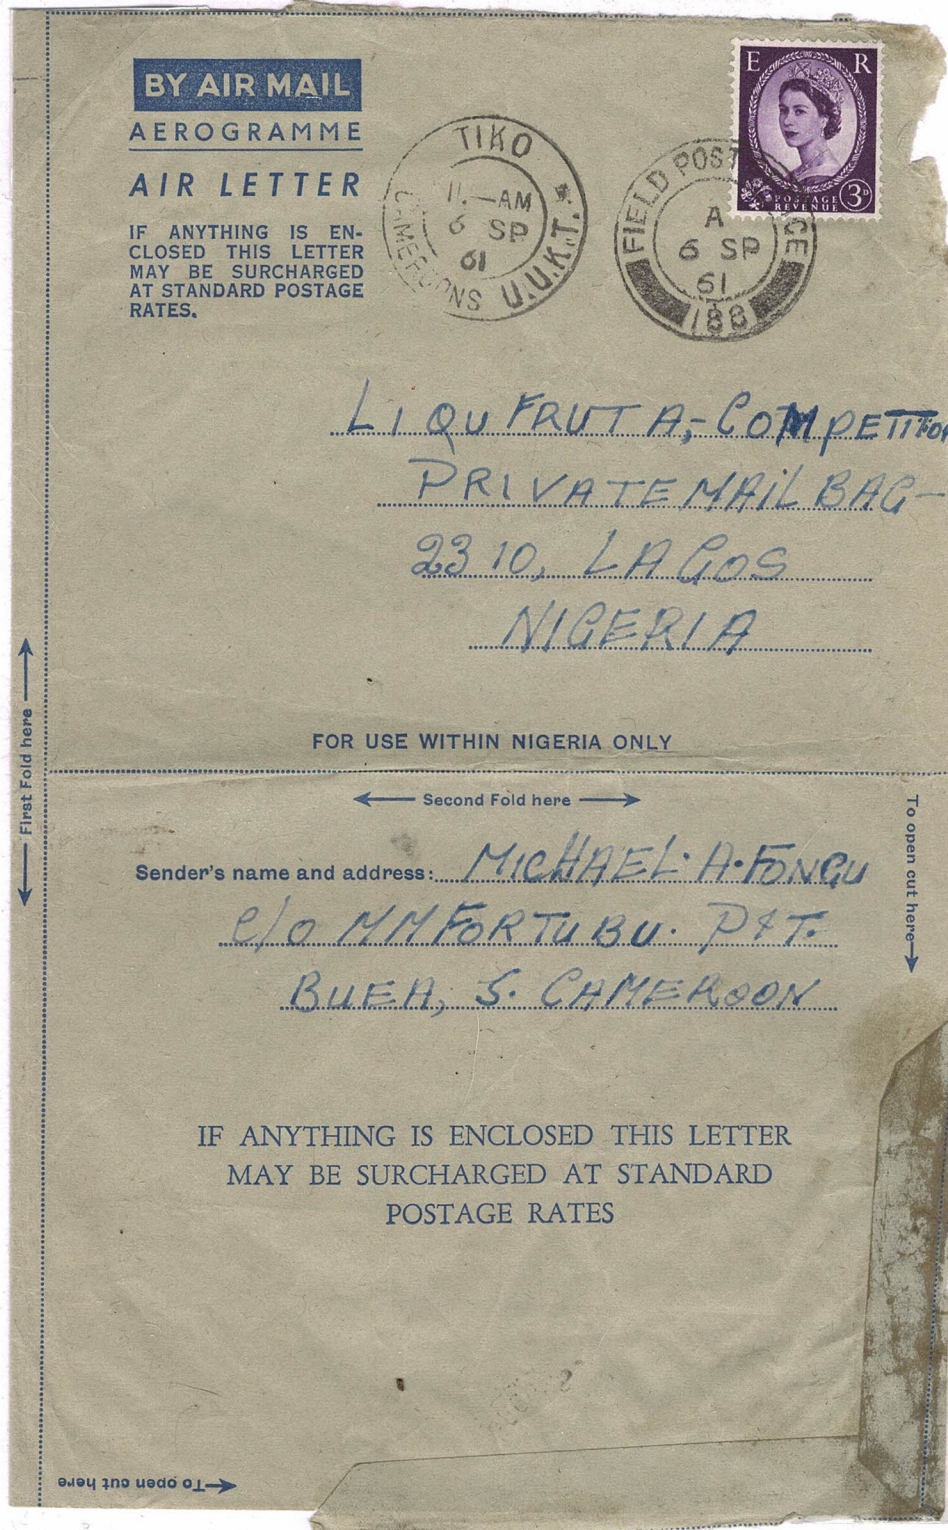 E R
BY AIR MAIL
AEROGRAMME
AIR LETTER
IF ANYTHING IS EN-
CLOSED THIS LETTER
MAY BE SURCHARGED
AT STANDARD POSTAGE
RATES.
TIKO
11.—AM
6 SP
61
CAMEROONS U.U.K.T. *
FIELD POST OFFICE
A
6 SP
61
188
POSTAGE
REVENUE 3D
LIQUFRUTA,-COMPETITION
PRIVATE MAIL BAG-
2310, LAGOS
NIGERIA
FOR USE WITHIN NIGERIA ONLY
First Fold here
Second Fold here
To open cut here
Sender's name and address: MICHAEL. A. FONGU
c/o MMFORTUBU. P&T.
BUEA, S. CAMEROON
IF ANYTHING IS ENCLOSED THIS LETTER
MAY BE SURCHARGED AT STANDARD
POSTAGE RATES
To open cut here